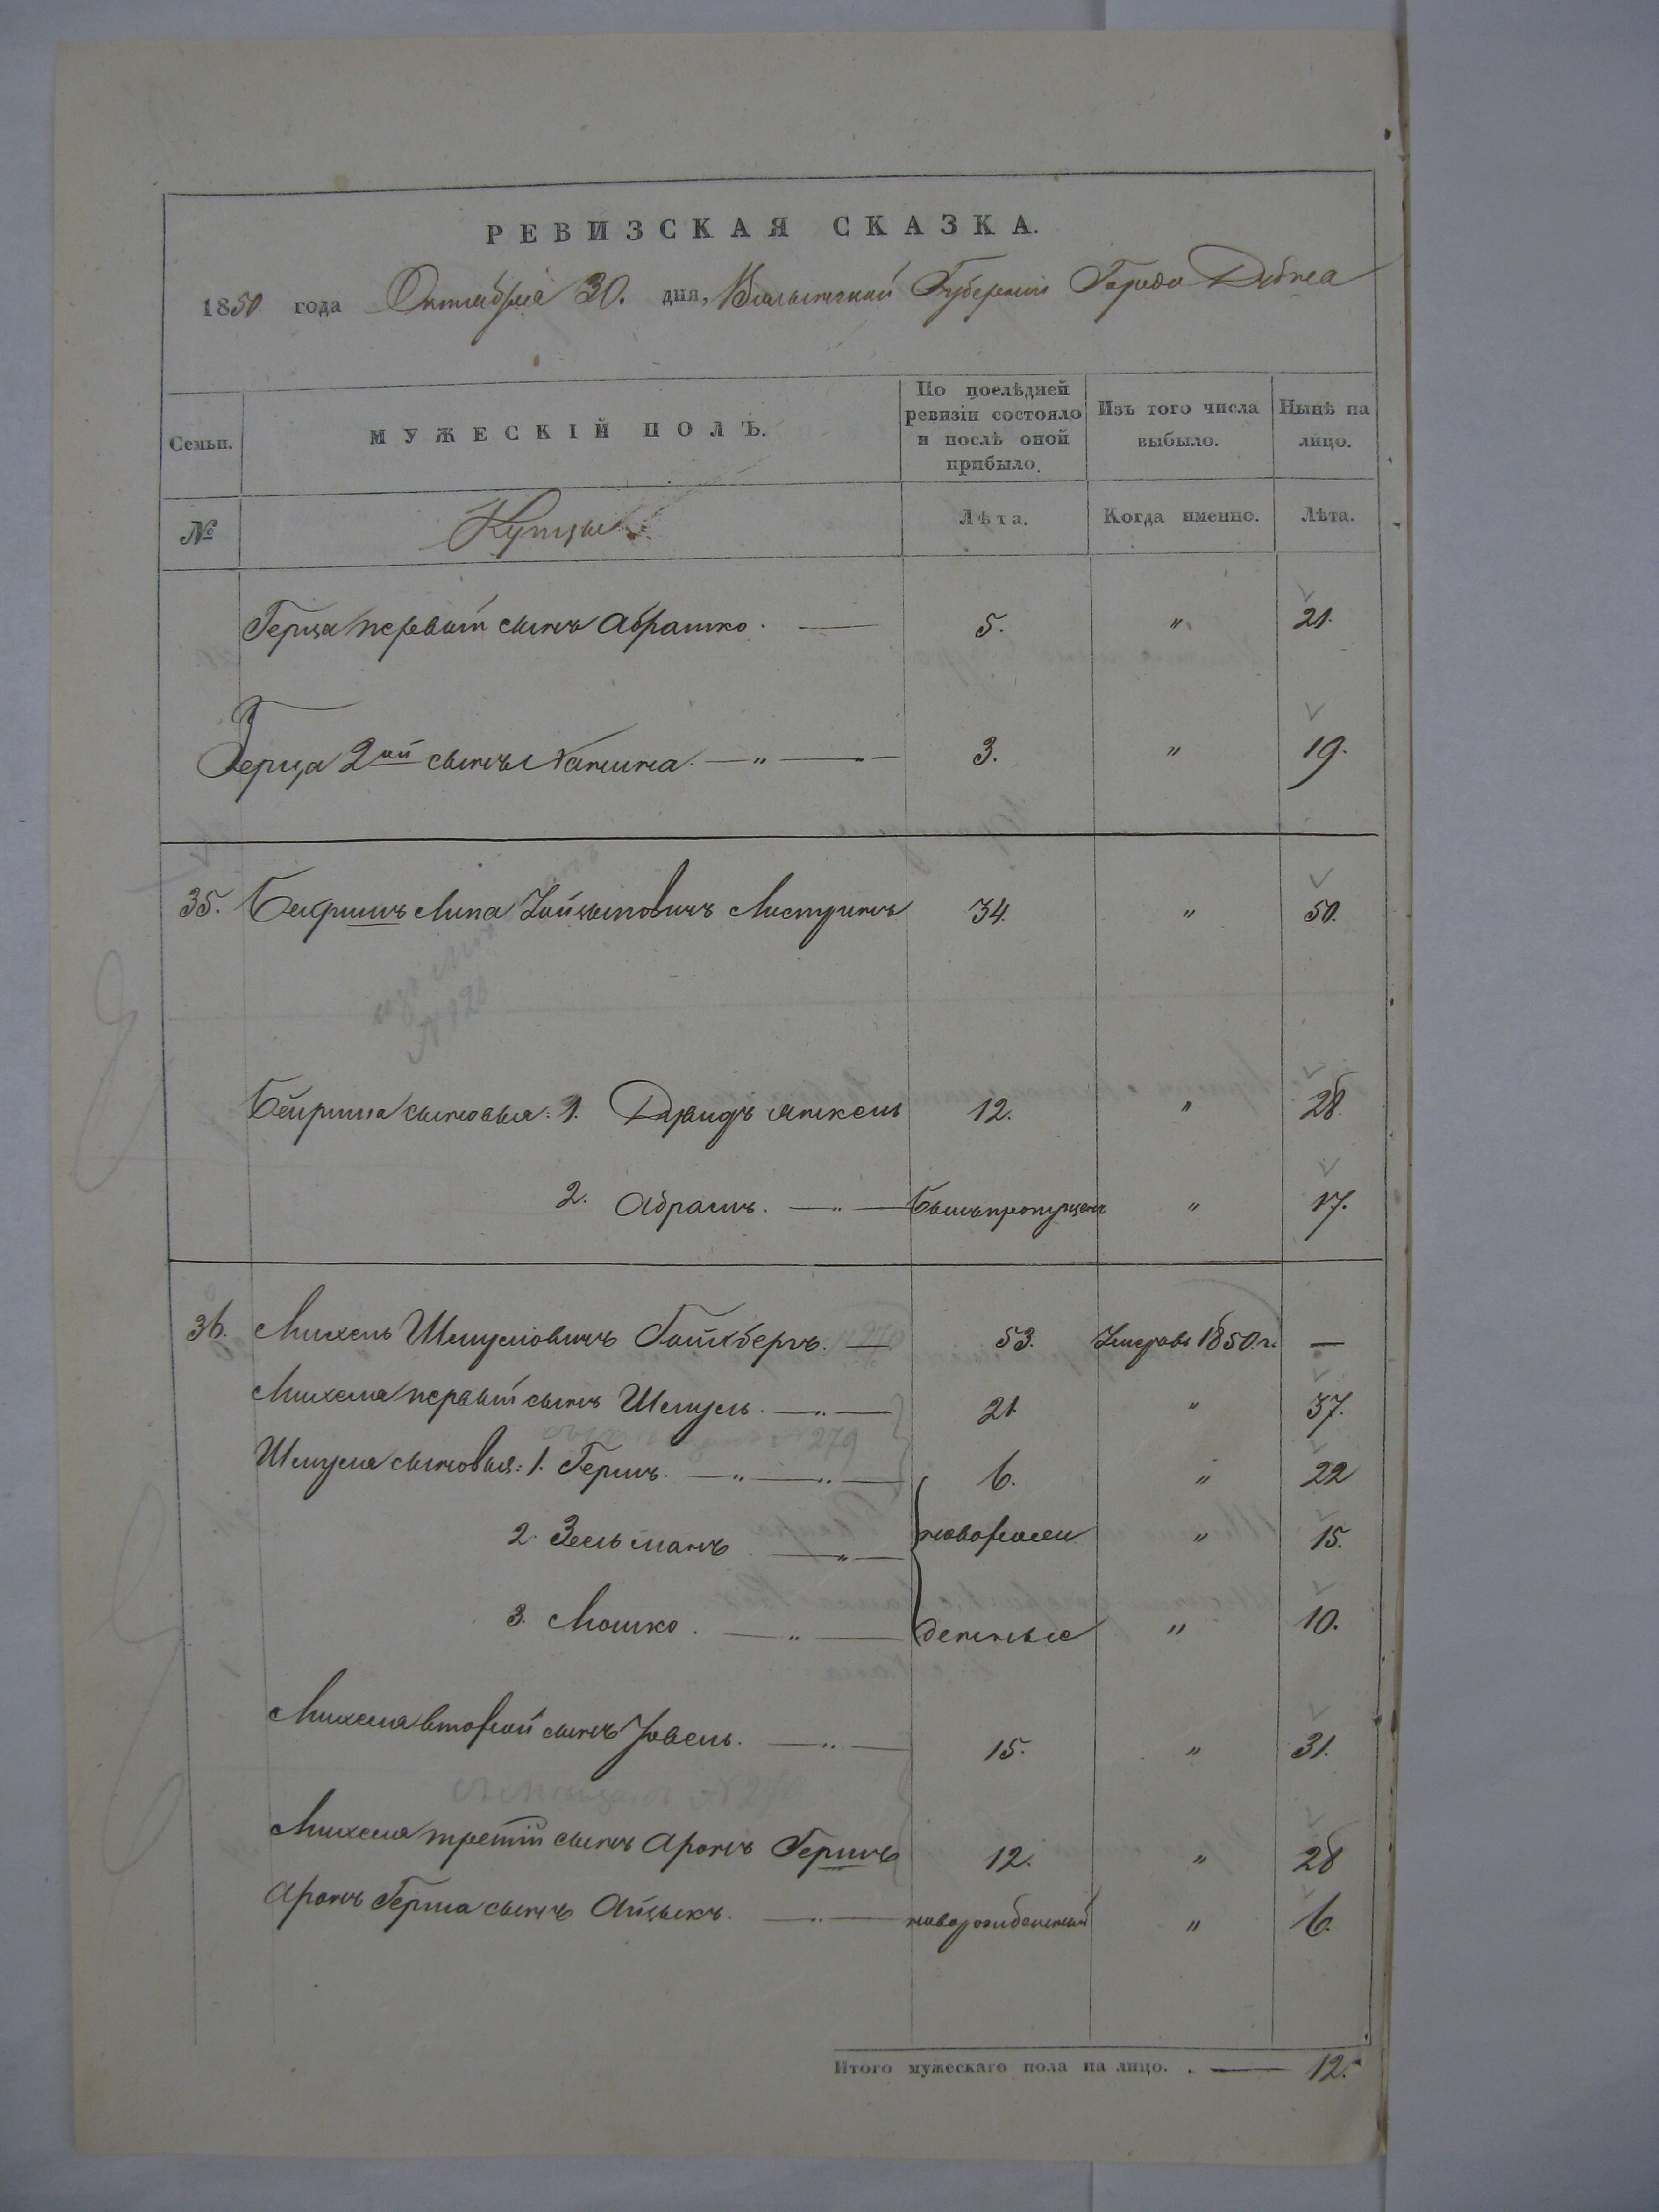 РЕВИЗСКАЯ СКАЗКА.
1850 года Октября 30. дня, Волынской Губернии Города Дубна
Семьи.
МУЖЕСКІЙ ПОЛЪ.
По послѣдней ревизіи состояло и послѣ оной прибыло.
Изъ того числа выбыло.
Нынѣ на лицо.
№ Купцы Лѣта. Когда именно. Лѣта.
Герца первый сынъ Абрашко. — 5. " 21.
Герца 2ой сынъ — " — 3. " 19.
35. Липа 34. " 50.
сыновья: 1. Давидъ 12. " 28.
2. Абрамъ. — " — былъ пропущенъ " 17.
36. Михель Шмулловичъ Гольдбергъ. — 53. Умеръ въ 1850 г. —
Михеля первый сынъ Шмуль. — " — 21. " 37.
279
Шмуля сыновья: 1. Гершъ. — " — " — 6. " 22
2. Зельманъ — " — новорож " 15.
3. Мошко. — " — денные " 10.
Михеля второй сынъ Іовель. — " — 15. " 31.
Михеля третій сынъ Аронъ Гершъ 12. " 28
Аронъ Герша сынъ Айзыкъ. — " — новорожденный " 6.
Итого мужескаго пола на лицо. . — 12.